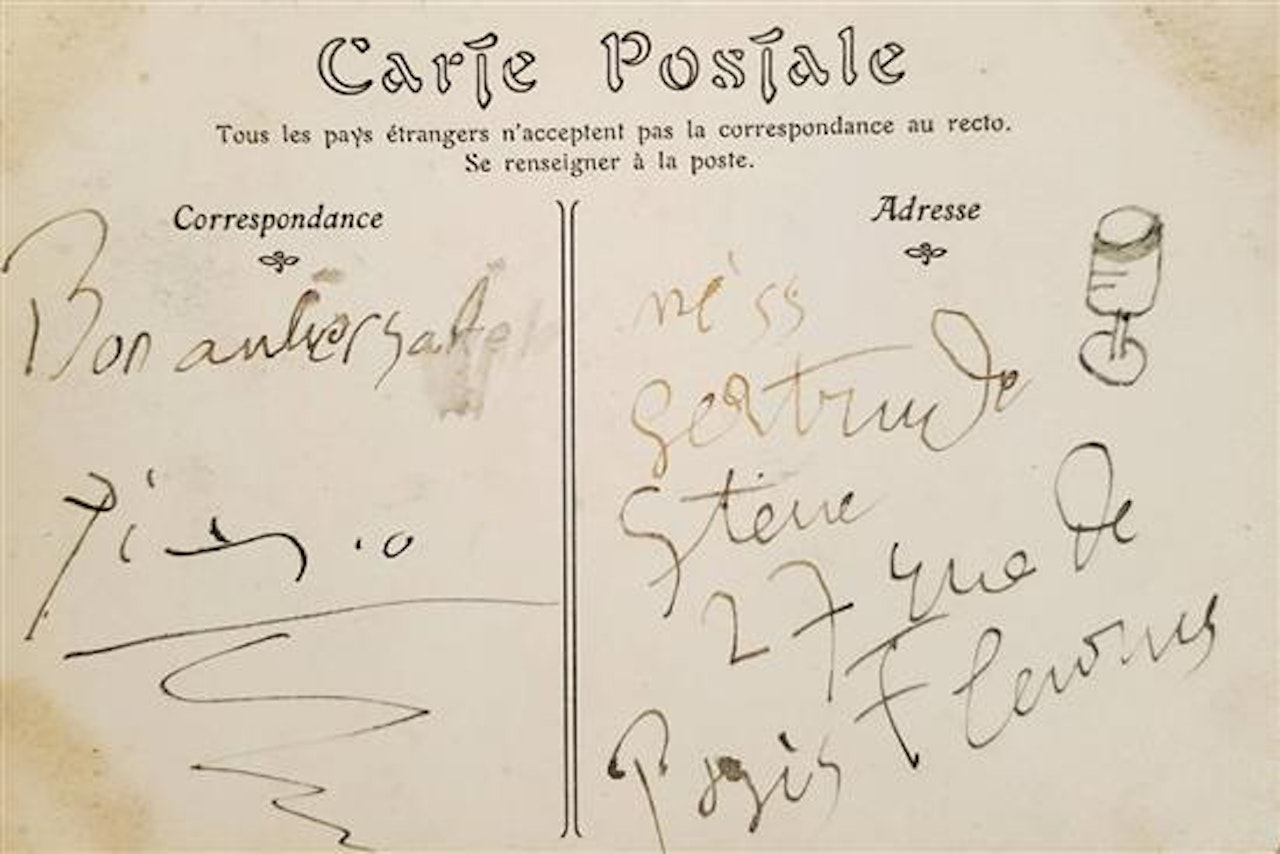 Carte Postale
Tous les pays étrangers n'acceptent pas la correspondance au recto.
Se renseigner à la poste.
Correspondance
Adresse
Bon
Picasso
Miss
Gertrude
Steine
27 rue de
Fleurus
Paris